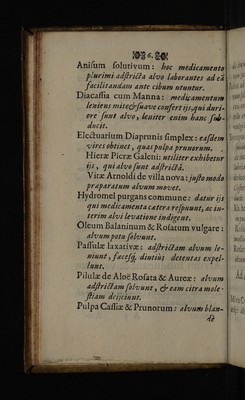 6.
Anisum solutivum: hoc medicamento
plurimi adstricta alvo laborantes ad eā
facilitandam ante cibum utuntur.
Diacassia cum Manna: medicamentum
leniens mite & suave confert ijs, qui duri-
ore sunt alvo, leniter enim hanc sub-
ducit.
Electuarium Diaprunis simplex: easdem
vires obtinet, quas pulpa prunorum.
Hieræ Picræ Galeni: utiliter exhibetur
ijs, qui alvo sunt adstrictâ.
Vitæ Arnoldi de villa nova: justo modo
præparatum alvum movet.
Hydromel purgans commune: datur ijs
qui medicamenta cætera respuunt, ac in-
terim alvi levatione indigent.
Oleum Balaninum & Rosatum vulgare:
alvum potu solvunt.
Passulæ laxativæ: adstrictam alvum le-
niunt, fæcesq́; diutius detentas expel-
lunt.
Pilulæ de Aloë Rosata & Aureæ: alvum
adstrictam solvunt, & eam citra mole-
stiam dejiciunt.
Pulpa Cassiæ & Prunorum: alvum blan-
dè